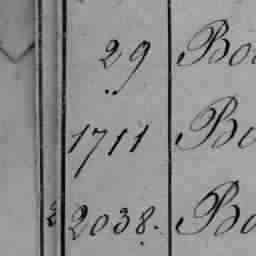 29 Bo
1711 Bu
2038. Bo